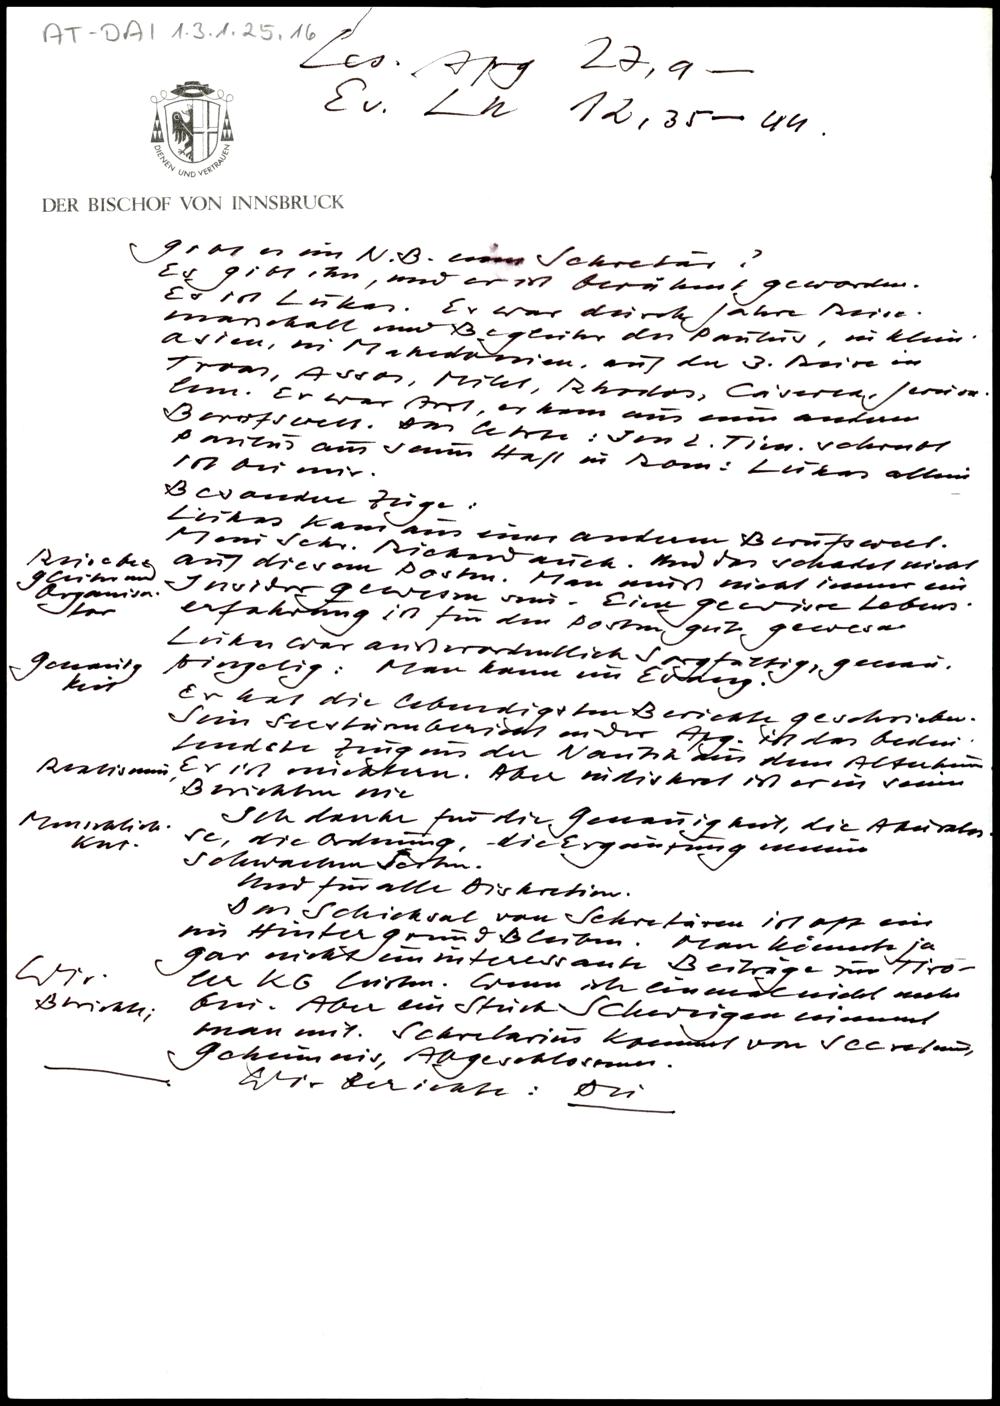 AT-DAI 1.3.1.25.16
Les. Apg 27,9 —
Ev. Lk 12,35 — 44.
DIENEN UND VERTRAUEN
DER BISCHOF VON INNSBRUCK
Gibt es im N.B. einen Sekretär?
Es gibt ihn, und er ist berühmt geworden.
Es ist Lukas. Er war durch Jahre Reise-
marschall und Begleiter des Paulus, in Klein-
asien, in Makedonien, auf der 3. Reise in
Troas, Assos, Milet, Rhodos, Cäsarea, Jerusa-
lem. Er war Arzt, er kam aus einer anderen
Berufswelt. Das letzte: Im 2. Tim. schreibt
Paulus aus seiner Haft in Rom: Lukas allein
ist bei mir.
Besondere Züge:
Lukas kam aus einer anderen Berufswelt.
Mein Sekr. Richard auch. Und das schadet nicht
auf diesem Posten. Man muß nicht immer ein
Insider gewesen sein. Eine gewisse Lebens-
erfahrung ist für den Posten gut gewesen
Reisebe-
gleiter und
Organisa-
tor
Lukas war außerordentlich sorgfältig, genau,
pingelig: Man kann im Evang.
Genauig
keit
Er hat die lebendigsten Berichte geschrieben.
Sein Seesturmbericht in der Apg. ist das bedeu-
tendste Zeugnis der Nautik aus dem Altertum.
Realismus, Er ist nüchtern. Aber indiskret ist er in seinen
Berichten nie
Menschlich-
keit.
Ich danke für die Genauigkeit, die Akurates-
se, die Ordnung, die Ergänzung meiner
schwachen Seiten.
Und für alle Diskretion.
Das Schicksal von Sekretären ist oft ein
im Hintergrund Bleiben. Man könnte ja
gar nicht uninteressante Beiträge zur Tiro-
ler KG leisten. Wenn ich einmal nicht mehr
bin. Aber ein Stück Schweigen nimmt
man mit. Sekretarius kommt von secretum,
Geheimnis, Abgeschlossenes.
Wir
Berichte;
Wir berichte: Die